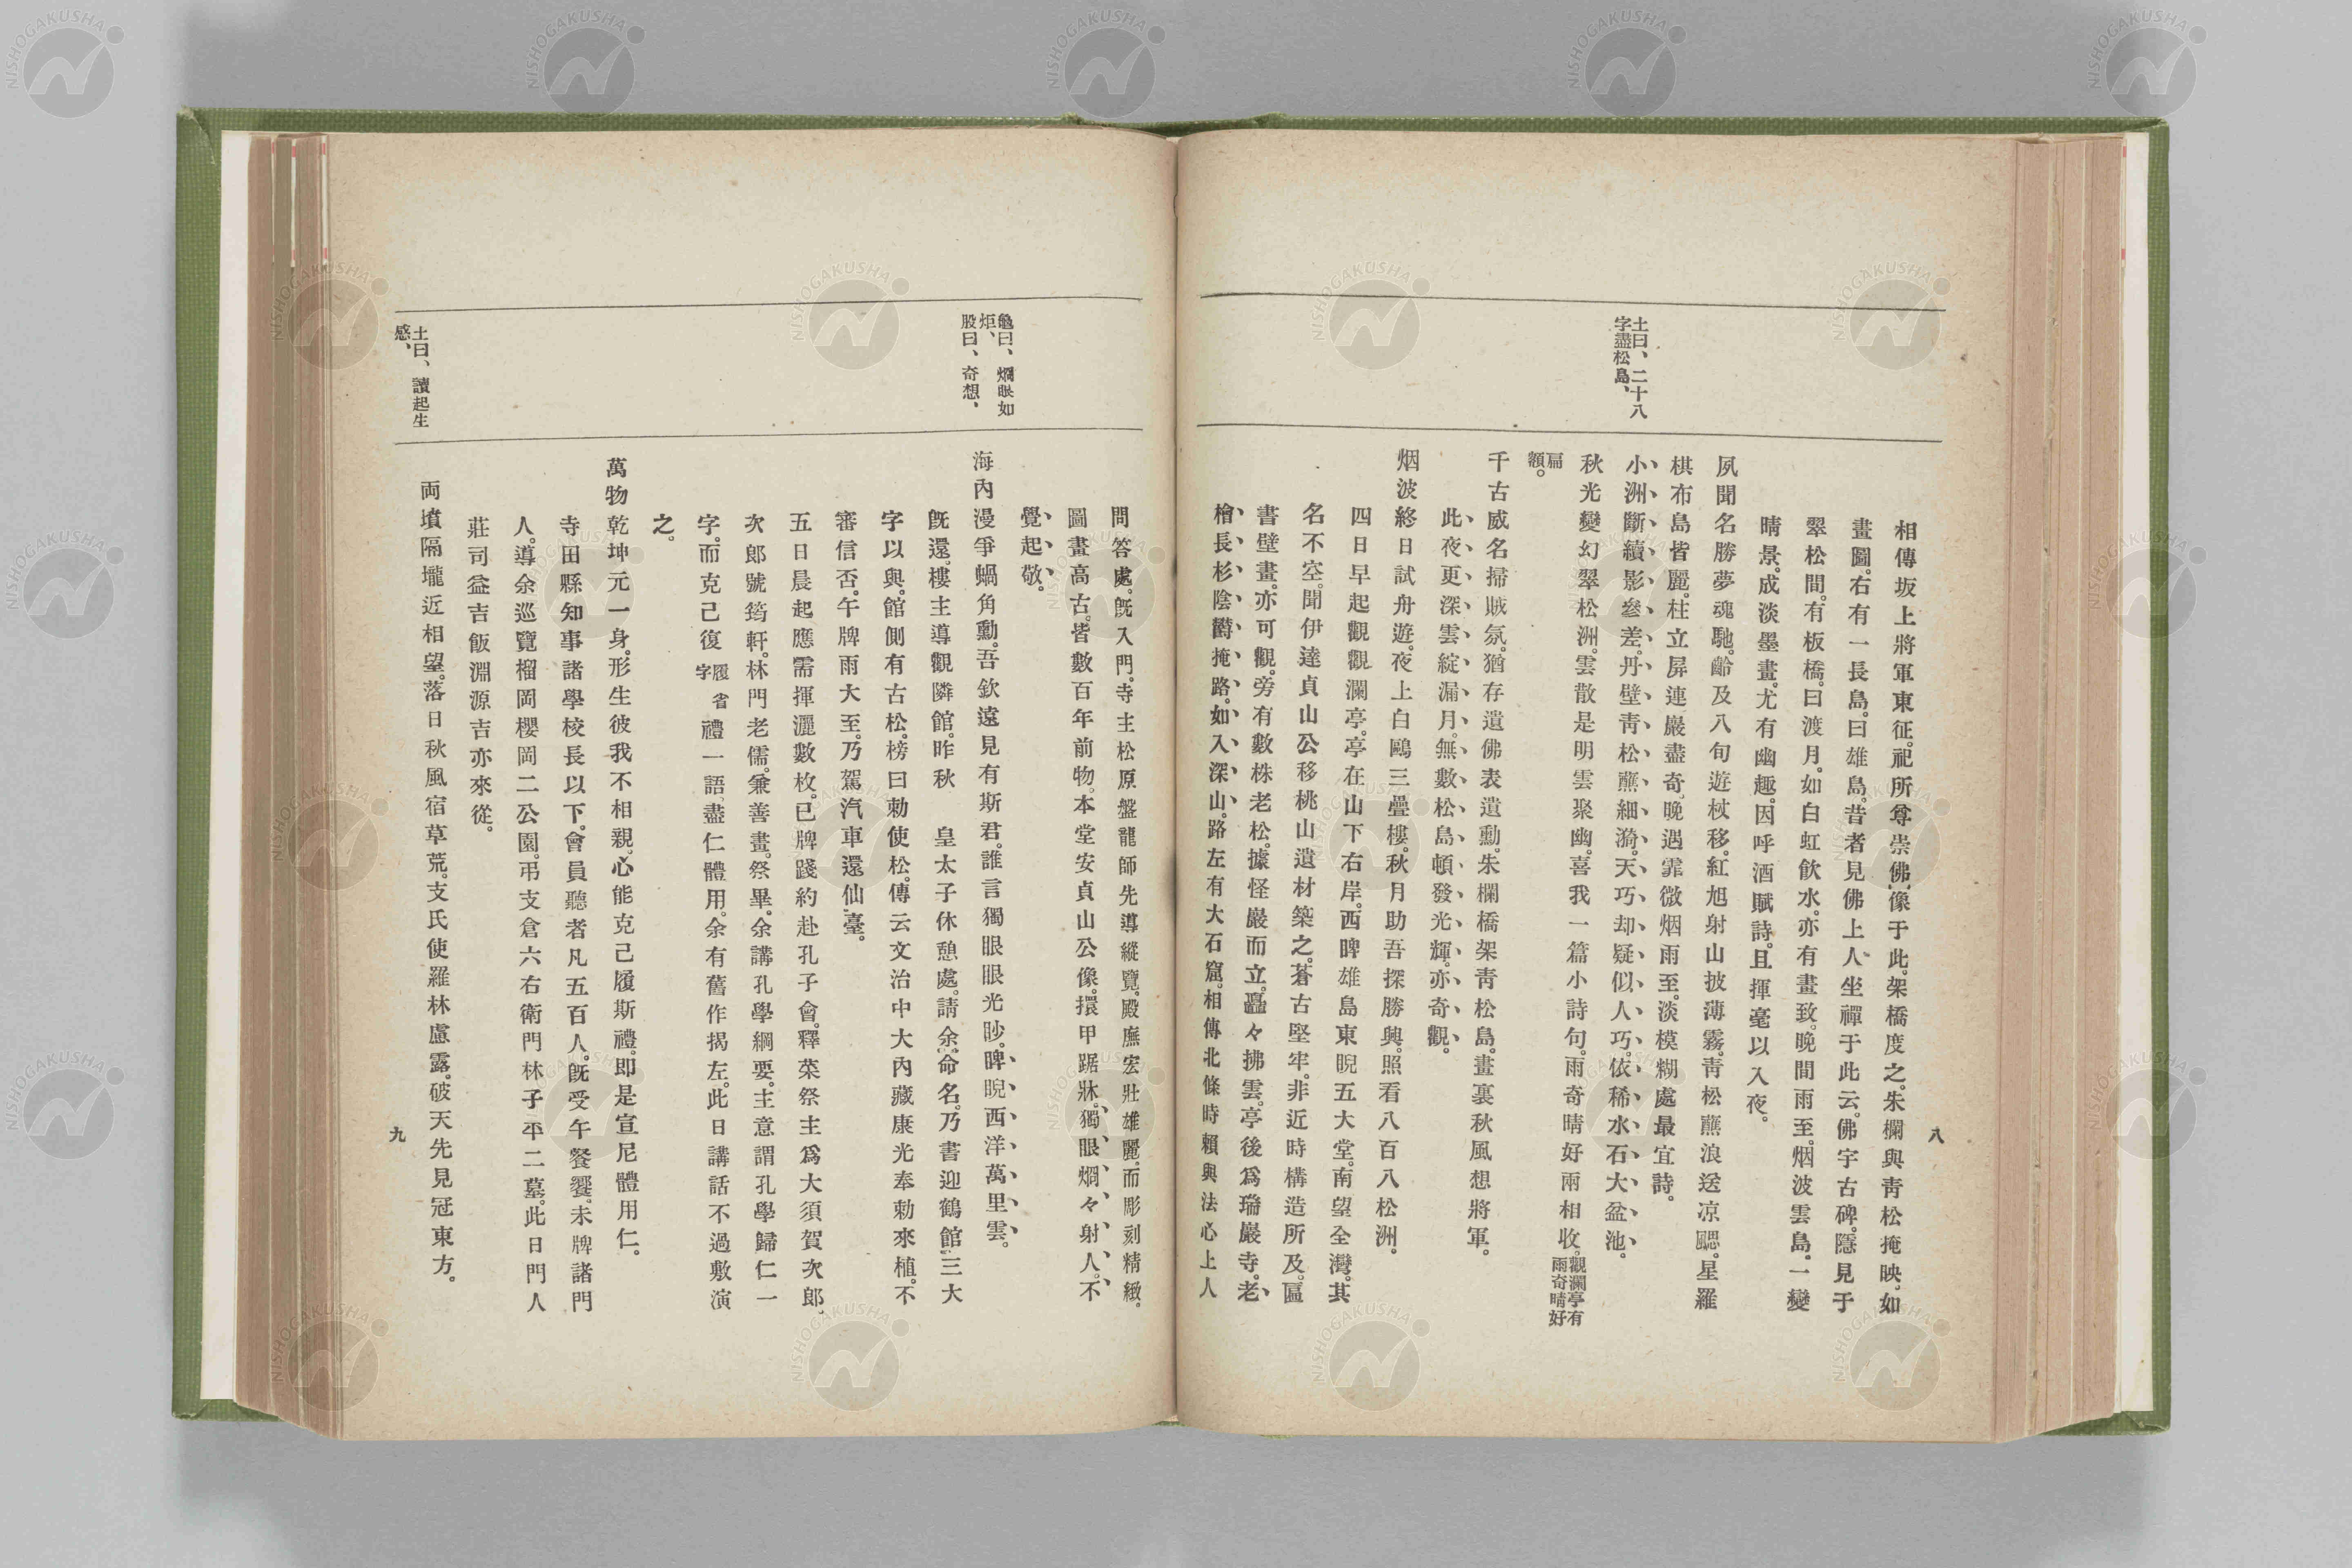 八
土曰、二十八
字盡松島、
相傳坂上將軍東征。祀所尊崇佛像于此。架橋度之。朱欄與靑松掩映。如
畫圖。右有一長島。曰雄島。昔者見佛上人坐禪于此云。佛宇古碑。隱見于
翠松間。有板橋。曰渡月。如白虹飮水。亦有畫致。晩間雨至。烟波雲島。一變
晴景。成淡墨畫。尤有幽趣。因呼酒賦詩。且揮毫以入夜。
夙聞名勝夢魂馳。齡及八旬遊杖移。紅旭射山披薄霧。靑松蘸浪送凉颸。星羅
棋布島皆麗。柱立屏連巖盡奇。晩遇霏微烟雨至。淡模糊處最宜詩。
小洲斷續影參差。丹壁靑松蘸細漪。天巧却疑似人巧。依稀水石大盆池。
秋光變幻翠松洲。雲散是明雲聚幽。喜我一篇小詩句。雨奇晴好兩相收。觀瀾亭有雨奇晴好
扁額。
千古威名掃賊氛。猶存遺佛表遺勳。朱欄橋架靑松島。畫裏秋風想將軍。
此夜更深雲綻漏月。無數松島頓發光輝。亦奇觀。
烟波終日試舟遊。夜上白鷗三疊樓。秋月助吾探勝興。照看八百八松洲。
四日早起觀觀瀾亭。亭在山下右岸。西睥雄島東睨五大堂。南望全灣。其
名不空。聞伊達貞山公移桃山遺材築之。蒼古堅牢。非近時構造所及。匾
書壁畫。亦可觀。旁有數株老松。據怪巖而立。矗々拂雲。亭後爲瑞巖寺。老
檜長杉陰欝掩路。如入深山。路左有大石窟。相傳北條時賴與法心上人
龜曰、爛眼如
炬、
股曰、奇想、
土曰、讀起生
感、
問答處。旣入門。寺主松原盤龍師先導縱覽。殿廡宏壯雄麗。而彫刻精緻。
圖畫高古。皆數百年前物。本堂安貞山公像。擐甲踞牀。獨眼爛々射人。不
覺起敬。
海內漫爭蝸角勳。吾欽遠見有斯君。誰言獨眼眼光眇。睥睨西洋萬里雲。
旣還。樓主導觀隣館。昨秋　皇太子休憩處。請余命名。乃書迎鶴館三大
字以與。館側有古松。榜曰勅使松。傳云文治中大內藏康光奉勅來植。不
審信否。午牌雨大至。乃駕汽車還仙臺。
五日晨起應需揮灑數枚。已牌踐約赴孔子會。釋菜祭主爲大須賀次郎、
次郎號筠軒。林門老儒。兼善畫。祭畢。余講孔學綱要。主意謂孔學歸仁一
字。而克己復履字省禮一語。盡仁體用。余有舊作揭左。此日講話不過敷演
之。
萬物乾坤元一身。形生彼我不相親。心能克己履斯禮。卽是宣尼體用仁。
寺田縣知事諸學校長以下。會員聽者凡五百人。旣受午餐饗。未牌諸門
人。導余巡覽榴岡櫻岡二公園。弔支倉六右衛門林子平二墓。此日門人
莊司益吉飯淵源吉亦來從。
両墳隔壠近相望。落日秋風宿草荒。支氏使羅林慮露。破天先見冠東方。
九